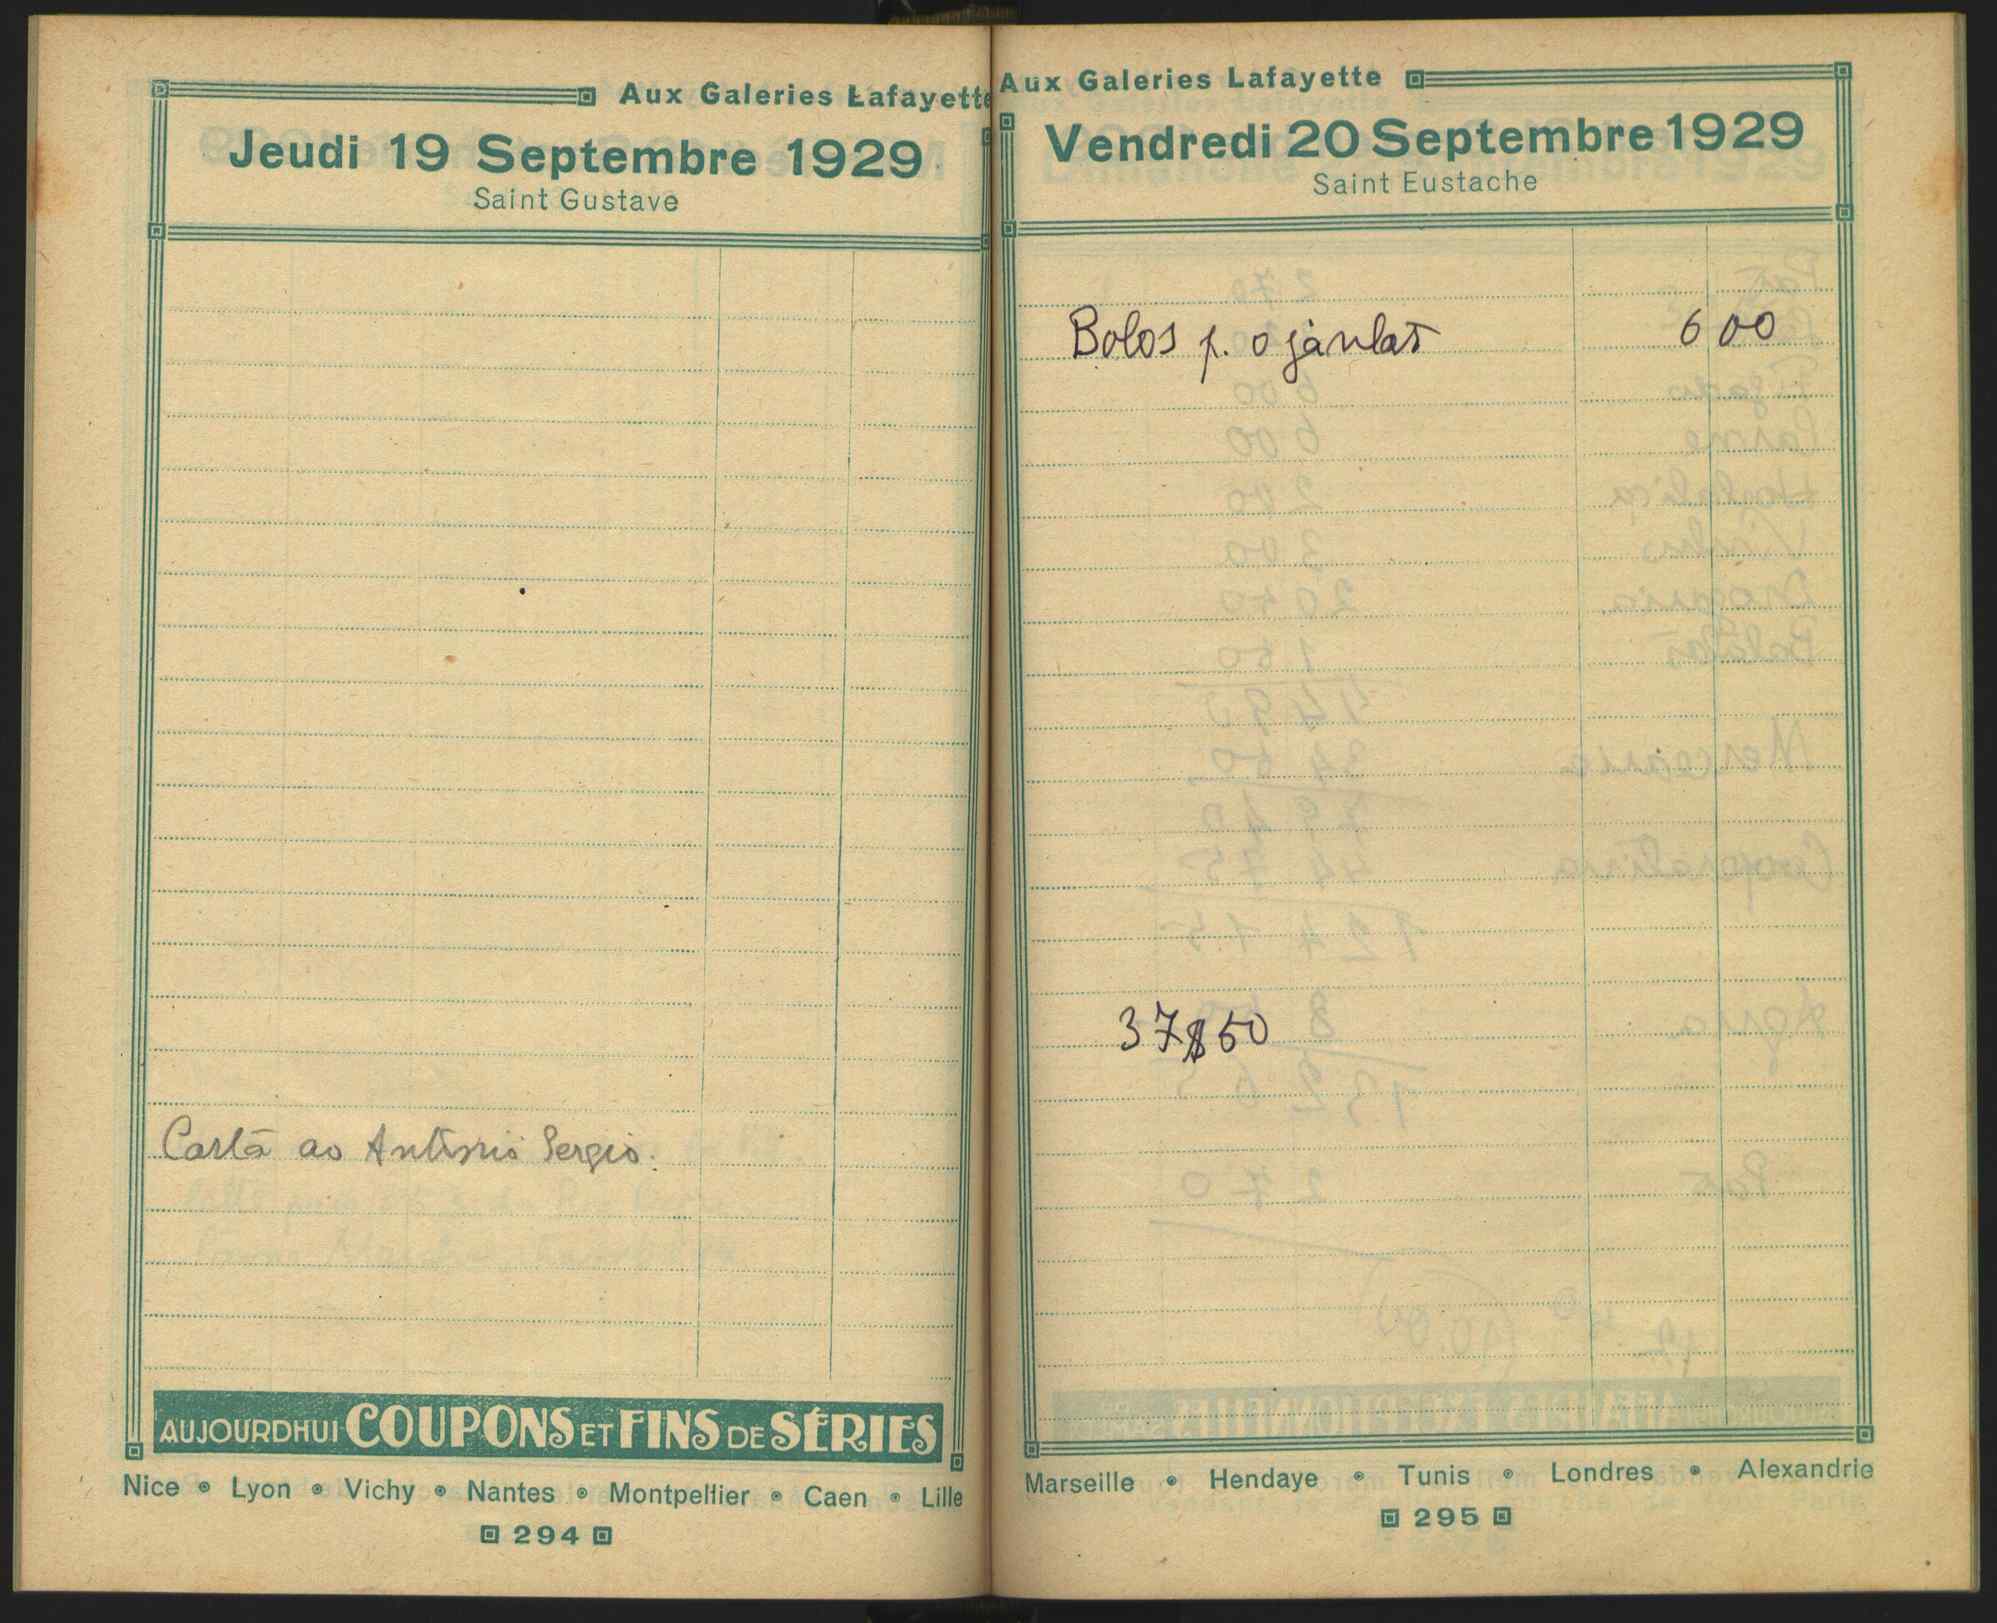 Aux Galeries Lafayette
Jeudi 19 Septembre 1929
Saint Gustave
Carta ao António Sergio.
AUJOURDHUI COUPONS ET FINS DE SÉRIES
Nice • Lyon • Vichy • Nantes • Montpellier • Caen • Lille
294
Aux Galeries Lafayette
Vendredi 20 Septembre 1929
Saint Eustache
Bolos p. o jantar 6 00
37$50
Marseille • Hendaye • Tunis • Londres • Alexandrie
295